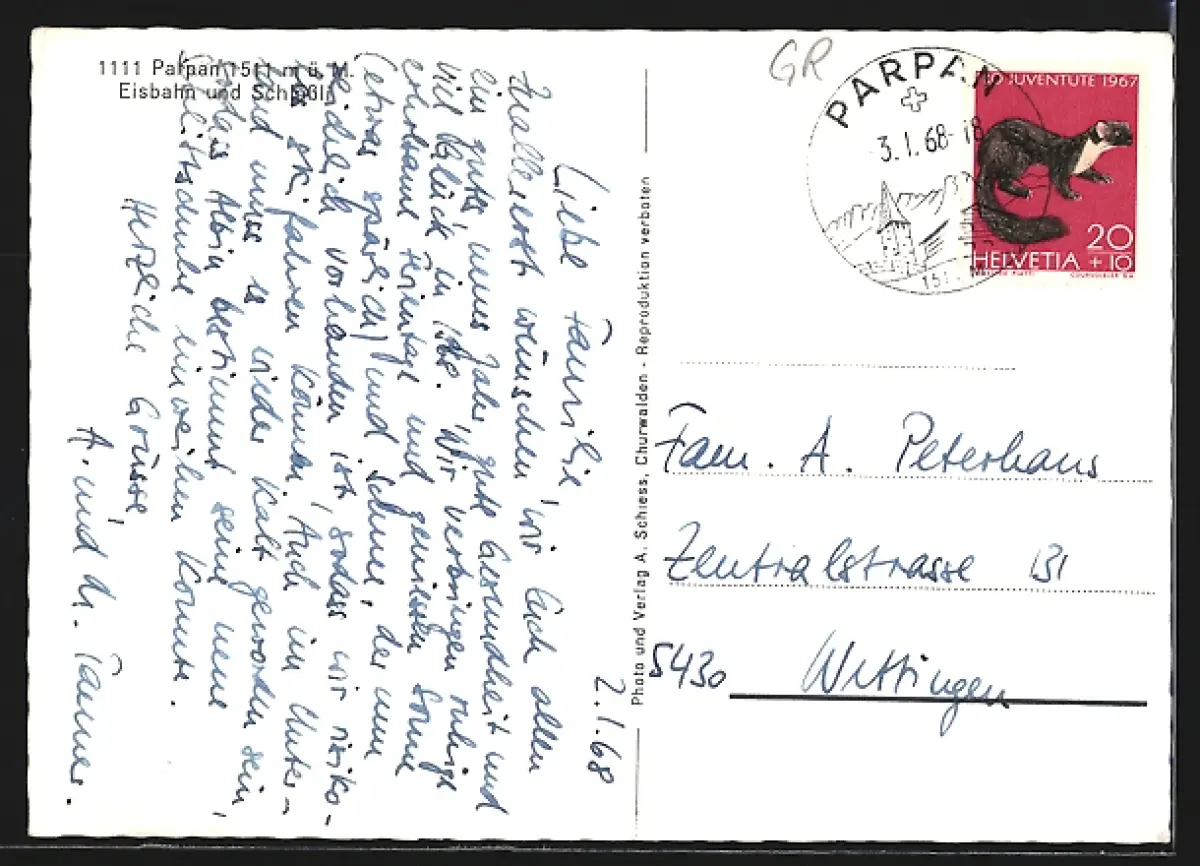 1111 Parpan 1511 m ü. M.
Eisbahn und Schlößli
2.1.68
Liebe Familie,
Zuallererst wünschen wir Euch allen
ein gutes, neues Jahr, gute Gesundheit und
viel Glück in ihr. Wir verbringen ruhige
erholsame Ferientage und geniessen Sonne
(etwas spärlich) und Schnee, der nun
reichlich vorhanden ist sodass wir risiko-
los skifahren können. Auch im Unter-
land muss es wieder kalt geworden sein,
sodass Albin bestimmt seine neue
Schlittschuhe einweihen konnte.
Herzliche Grüsse,
A. und H. Tanner.
Photo und Verlag A. Schiess, Churwalden - Reproduktion verboten
GR
PARPAN
3.1.68-18
151
PRO JUVENTUTE 1967
20
HELVETIA +10
COURVOISIER S.A.
Fam. A. Peterhans
Zentralstrasse 131
5430 Wettingen